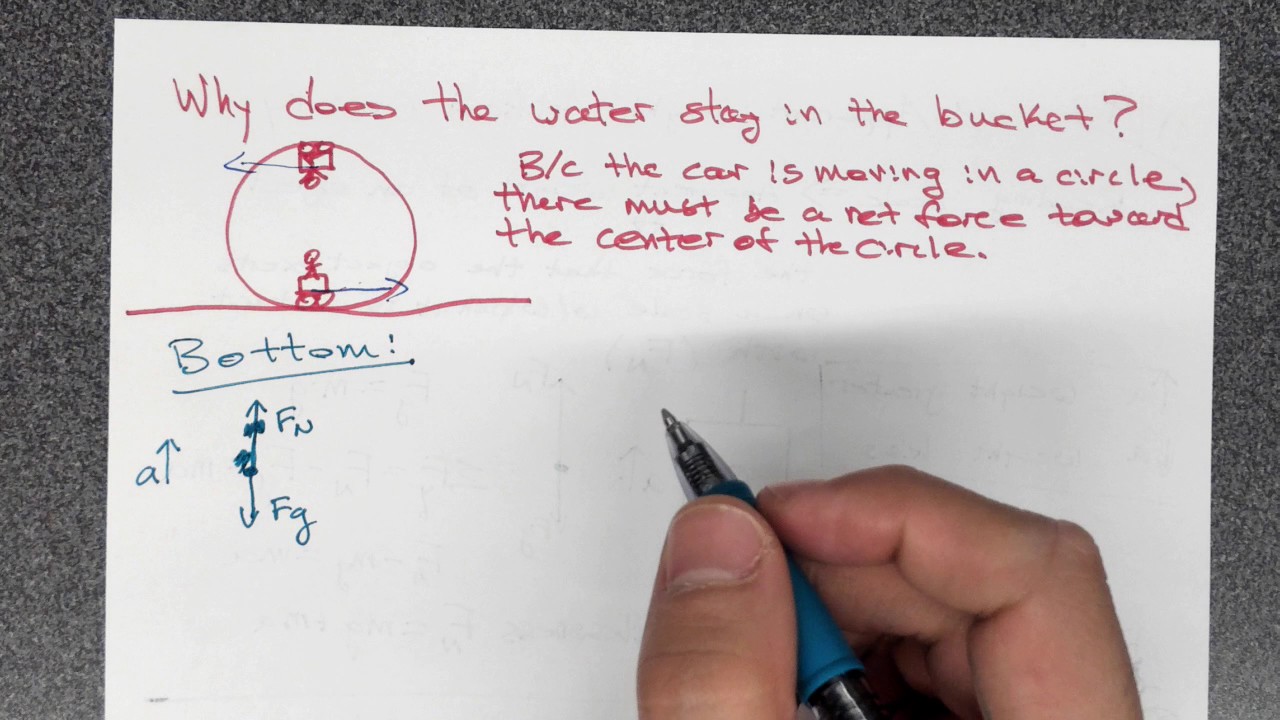 Why does the water stay in the bucket?
B/c the car is moving in a circle,
there must be a net force toward
the center of the circle.
Bottom:
FN
a
Fg